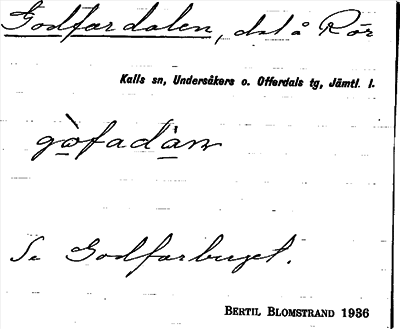 Godfardalen, dal å Rör
Kalls sn, Undersåkers o. Offerdals tg, Jämtl. l.
gò̱fadà̱n
Se Godfarberget.
BERTIL BLOMSTRAND 1936